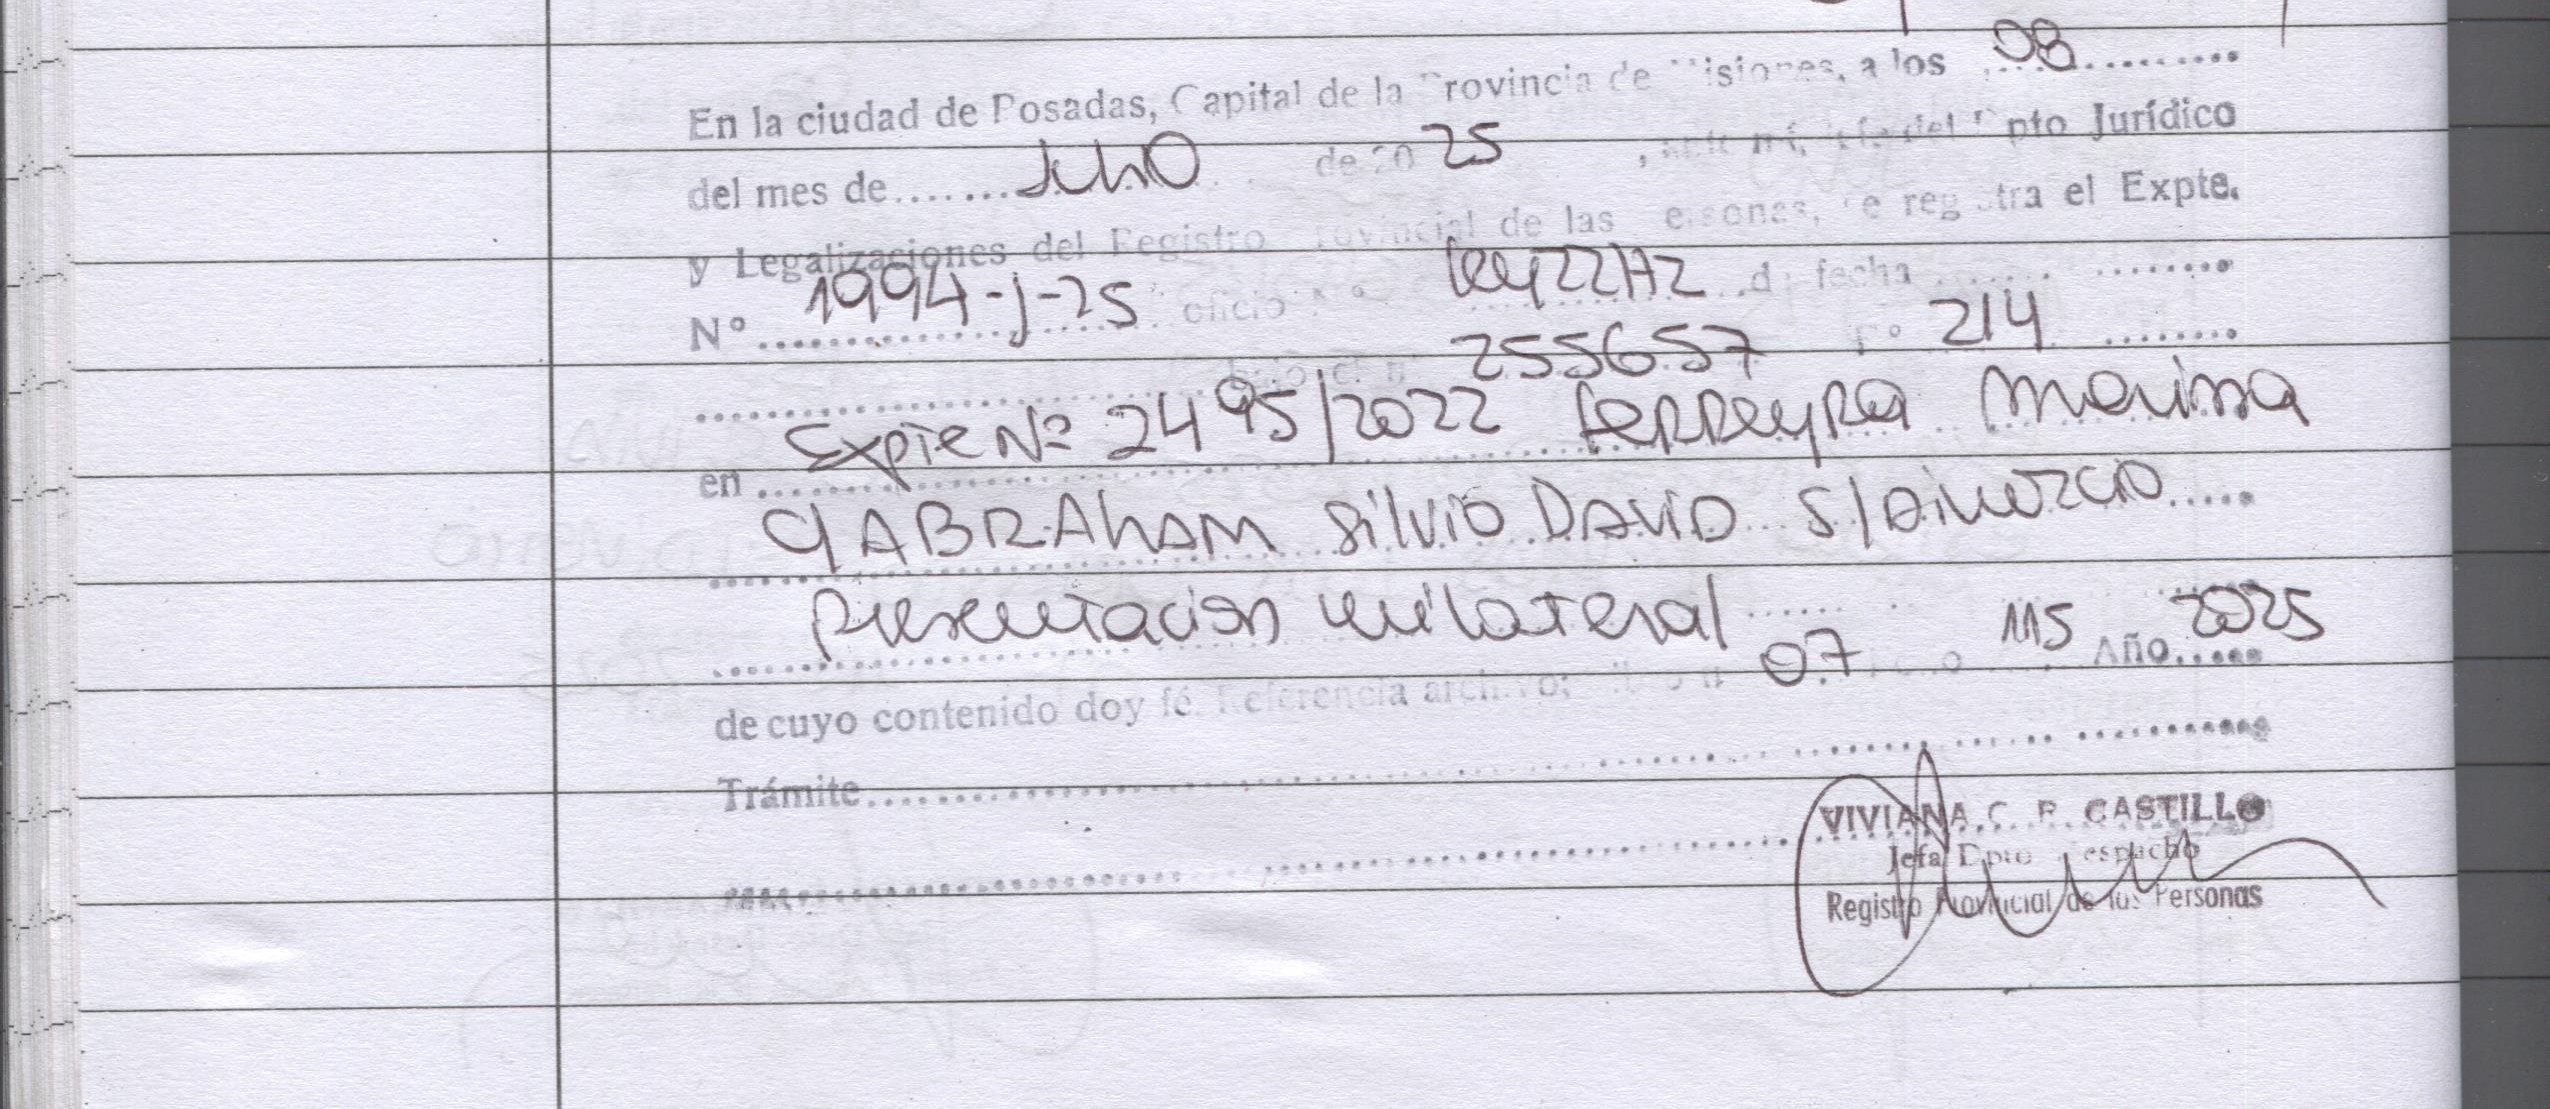 En la ciudad de Posadas, Capital de la Provincia de Misiones, a los 08
del mes de Julio de 20 25, ante mí, Jefe del Dpto Jurídico
y Legalizaciones del Registro Provincial de las Personas, se registra el Expte.
Nº 1994-J-25 oficio Nº Ley 22172 de fecha
bajo el nº 255657 Fº 214
en Expte Nº 2495/2022 Ferreyra Marina
c/ ABRAHAM Silvio DAVID S/Divorcio
presentacion unilateral
de cuyo contenido doy fé. Referencia archivo: Libro nº 07 Folio 115 Año 2025
Trámite
VIVIANA C. R. CASTILLO
Jefa Dpto Despacho
Registro Provincial de las Personas